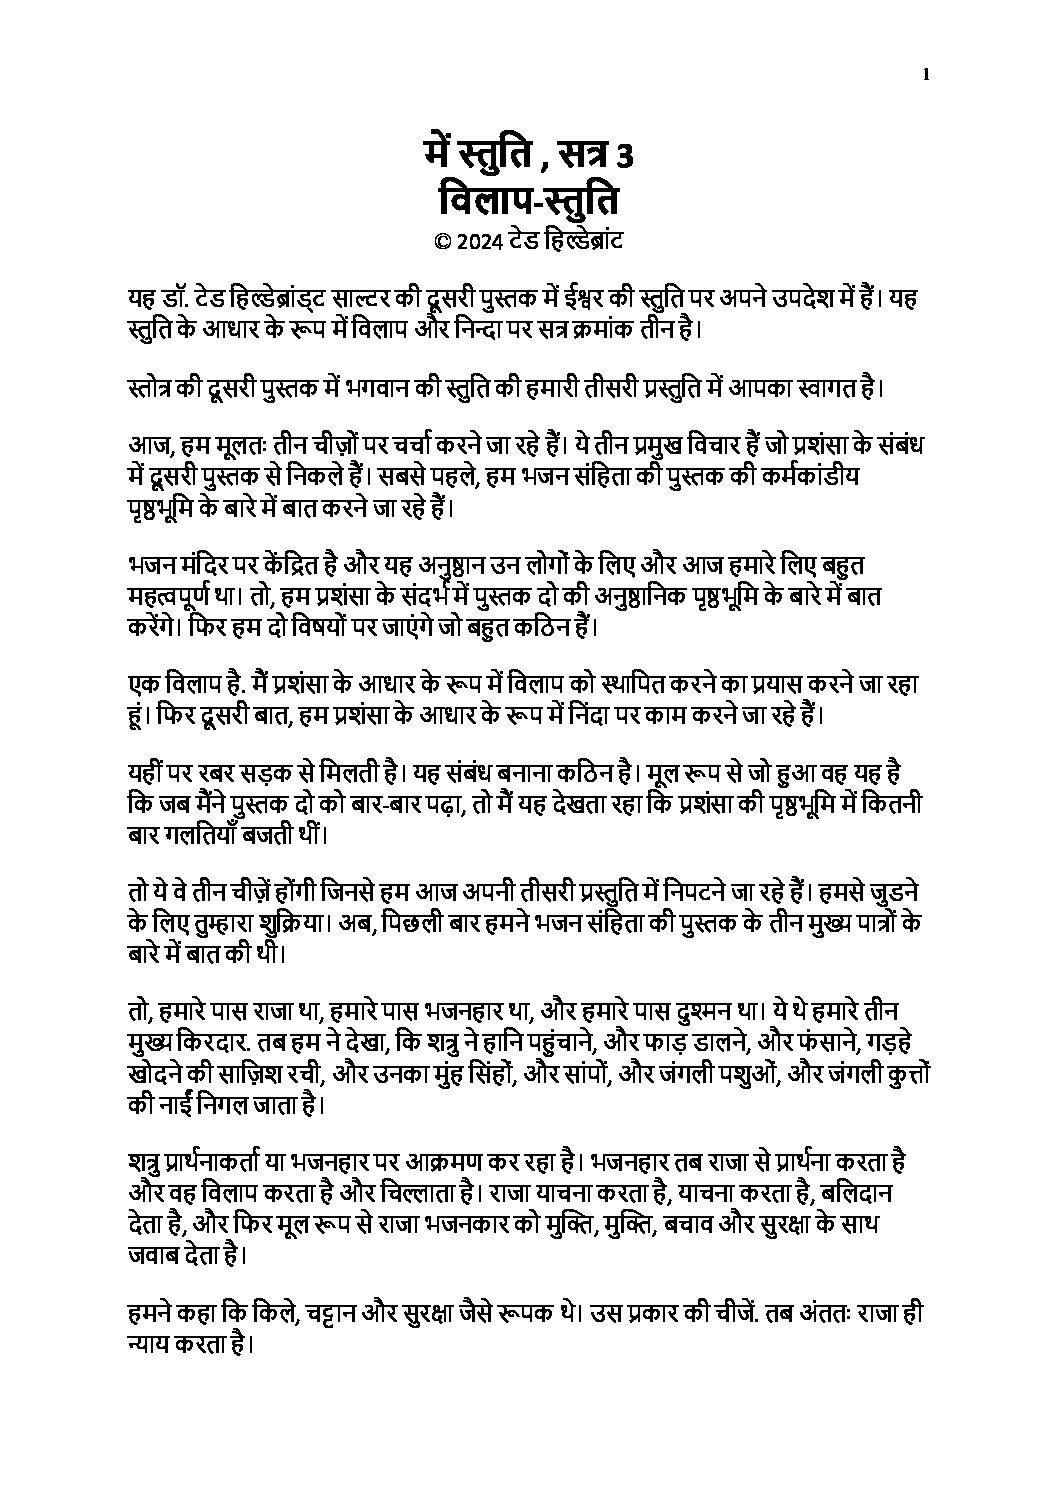 1
में स्तुति , सत्र 3
विलाप-स्तुति
© 2024 टेड हिल्डेब्रांट
यह डॉ. टेड हिल्डेब्रांड्ट साल्टर की दूसरी पुस्तक में ईश्वर की स्तुति पर अपने उपदेश में हैं। यह
स्तुति के आधार के रूप में विलाप और निन्दा पर सत्र क्रमांक तीन है।
स्तोत्र की दूसरी पुस्तक में भगवान की स्तुति की हमारी तीसरी प्रस्तुति में आपका स्वागत है।
आज, हम मूलतः तीन चीज़ों पर चर्चा करने जा रहे हैं। ये तीन प्रमुख विचार हैं जो प्रशंसा के संबंध
में दूसरी पुस्तक से निकले हैं। सबसे पहले, हम भजन संहिता की पुस्तक की कर्मकांडीय
पृष्ठभूमि के बारे में बात करने जा रहे हैं।
भजन मंदिर पर केंद्रित है और यह अनुष्ठान उन लोगों के लिए और आज हमारे लिए बहुत
महत्वपूर्ण था। तो, हम प्रशंसा के संदर्भ में पुस्तक दो की अनुष्ठानिक पृष्ठभूमि के बारे में बात
करेंगे। फिर हम दो विषयों पर जाएंगे जो बहुत कठिन हैं।
एक विलाप है. मैं प्रशंसा के आधार के रूप में विलाप को स्थापित करने का प्रयास करने जा रहा
हूं। फिर दूसरी बात, हम प्रशंसा के आधार के रूप में निंदा पर काम करने जा रहे हैं।
यहीं पर रबर सड़क से मिलती है। यह संबंध बनाना कठिन है। मूल रूप से जो हुआ वह यह है
कि जब मैंने पुस्तक दो को बार-बार पढ़ा, तो मैं यह देखता रहा कि प्रशंसा की पृष्ठभूमि में कितनी
बार गलतियाँ बजती थीं।
तो ये वे तीन चीज़ें होंगी जिनसे हम आज अपनी तीसरी प्रस्तुति में निपटने जा रहे हैं। हमसे जुडने
के लिए तुम्हारा शुक्रिया। अब, पिछली बार हमने भजन संहिता की पुस्तक के तीन मुख्य पात्रों के
बारे में बात की थी।
तो, हमारे पास राजा था, हमारे पास भजनहार था, और हमारे पास दुश्मन था। ये थे हमारे तीन
मुख्य किरदार. तब हम ने देखा, कि शत्रु ने हानि पहुंचाने, और फाड़ डालने, और फंसाने, गड़हे
खोदने की साज़िश रची, और उनका मुंह सिंहों, और सांपों, और जंगली पशुओं, और जंगली कुत्तों
की नाईं निगल जाता है।
शत्रु प्रार्थनाकर्ता या भजनहार पर आक्रमण कर रहा है। भजनहार तब राजा से प्रार्थना करता है
और वह विलाप करता है और चिल्लाता है। राजा याचना करता है, याचना करता है, बलिदान
देता है, और फिर मूल रूप से राजा भजनकार को मुक्ति, मुक्ति, बचाव और सुरक्षा के साथ
जवाब देता है।
हमने कहा कि किले, चट्टान और सुरक्षा जैसे रूपक थे। उस प्रकार की चीजें. तब अंततः राजा ही
न्याय करता है।